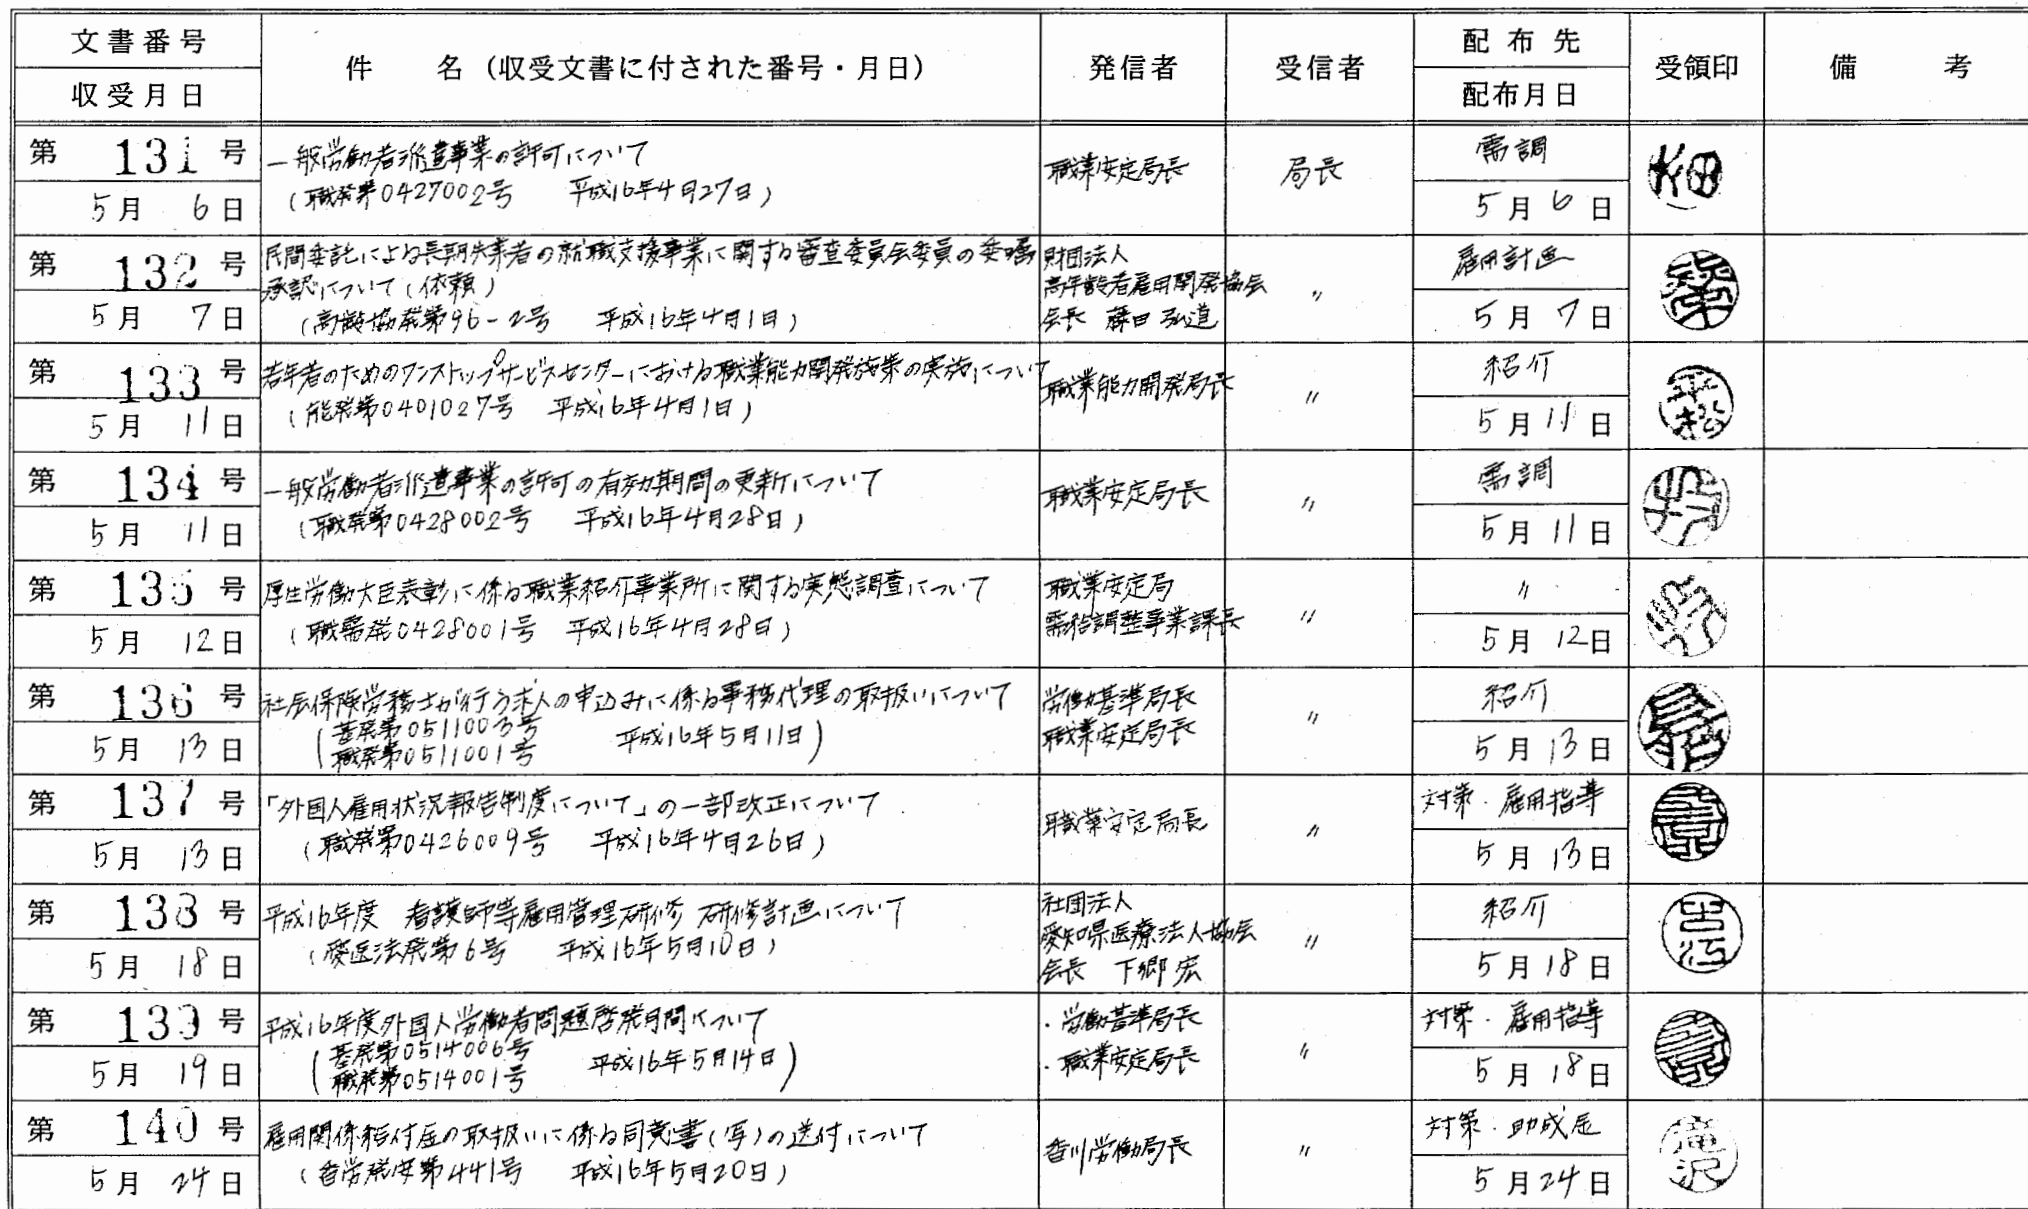 文書番号
収受月日
件 名（収受文書に付された番号・月日）
発信者
受信者
配布先
配布月日
受領印
備 考
第 131 号
5月 6日
一般労働者派遣事業の許可について
（職発第0427002号 平成16年4月27日）
職業安定局長
局長
需調
5月 6日
畑
第 132 号
5月 7日
民間委託による長期失業者の就職支援事業に関する審査委員会委員の委嘱
承認について（依頼）
（高齢協発第96-2号 平成16年4月1日）
財団法人
高年齢者雇用開発協会
会長 藤田弘道
〃
雇用計画
5月 7日
第 133 号
5月 11日
若年者のためのワンストップサービスセンターにおける職業能力開発施策の実施について
（能発第0401027号 平成16年4月1日）
職業能力開発局長
〃
紹介
5月 11日
平松
第 134 号
5月 11日
一般労働者派遣事業の許可の有効期間の更新について
（職発第0428002号 平成16年4月28日）
職業安定局長
〃
需調
5月 11日
第 135 号
5月 12日
厚生労働大臣表彰に係る職業紹介事業所に関する実態調査について
（職需発0428001号 平成16年4月28日）
職業安定局
需給調整事業課長
〃
〃
5月 12日
第 136 号
5月 13日
社会保険労務士が行う求人の申込みに係る事務代理の取扱いについて
（基発第0511003号
職発第0511001号 平成16年5月11日）
労働基準局長
職業安定局長
〃
紹介
5月 13日
第 137 号
5月 13日
「外国人雇用状況報告制度について」の一部改正について
（職発第0426009号 平成16年4月26日）
職業安定局長
〃
対策・雇用指導
5月 13日
第 138 号
5月 18日
平成16年度 看護師等雇用管理研修 研修計画について
（愛医法発第6号 平成16年5月10日）
社団法人
愛知県医療法人協会
会長 下郷宏
〃
紹介
5月 18日
古江
第 139 号
5月 19日
平成16年度外国人労働者問題啓発月間について
（基発第0514006号
職発第0514001号 平成16年5月14日）
・労働基準局長
・職業安定局長
〃
対策・雇用指導
5月 18日
第 140 号
5月 24日
雇用関係給付金の取扱いに係る同意書（写）の送付について
（香労発安第441号 平成16年5月20日）
香川労働局長
〃
対策・助成金
5月 24日
滝沢